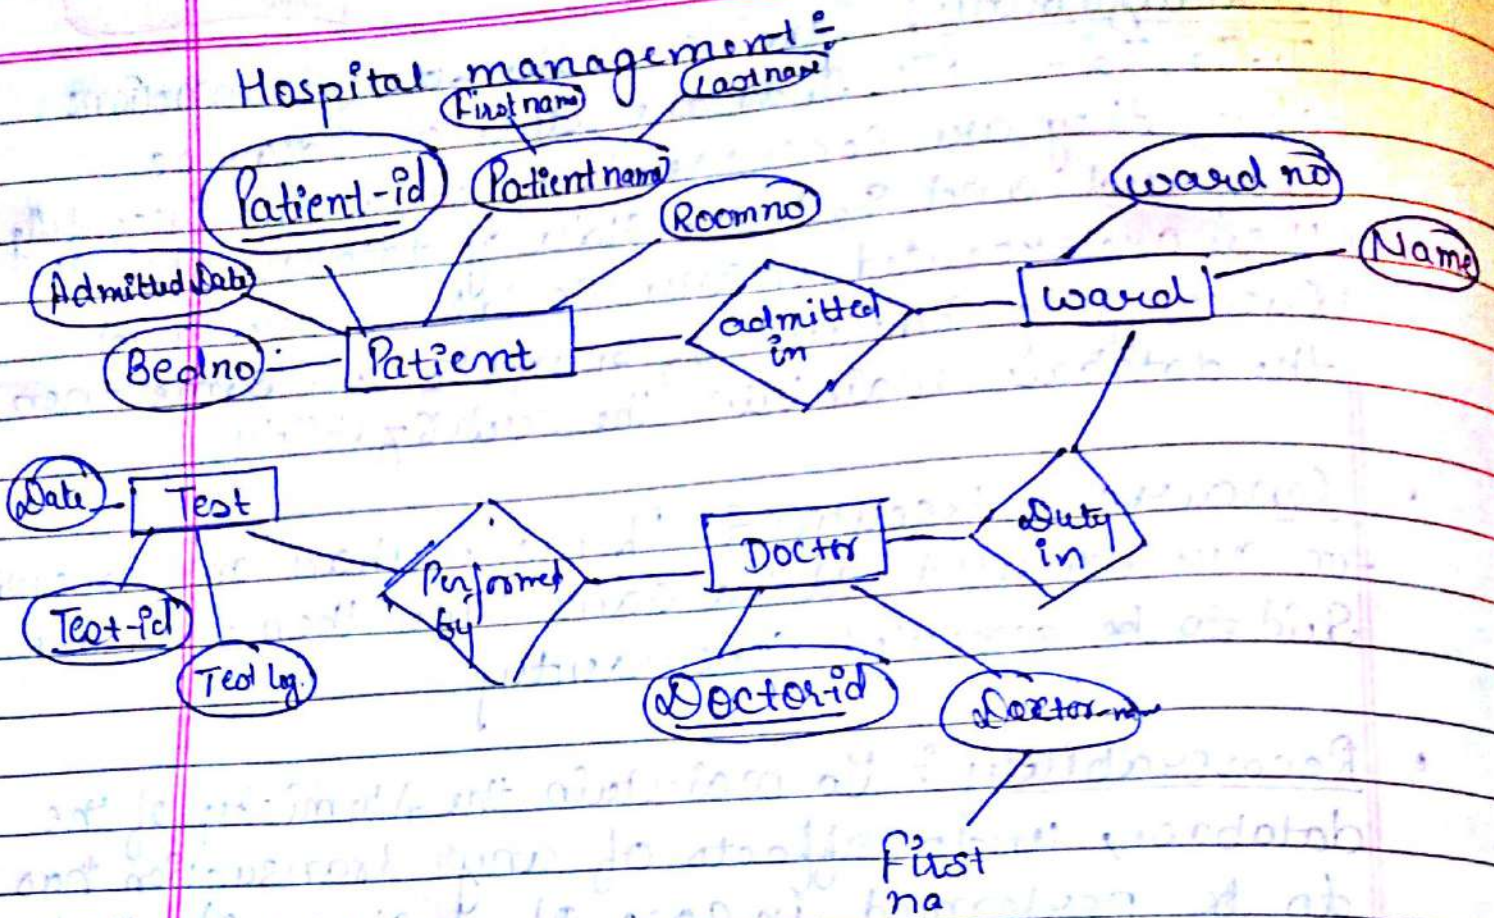 Hospital management :-
First name
Last name
Patient-id
Patient name
Room no
ward no
Name
Admitted Date
Bedno
Patient
admitted
in
ward
Date
Test
Performed
by
Doctor
Duty
in
Test-id
Test log
Doctor-id
Doctor-na
First
na